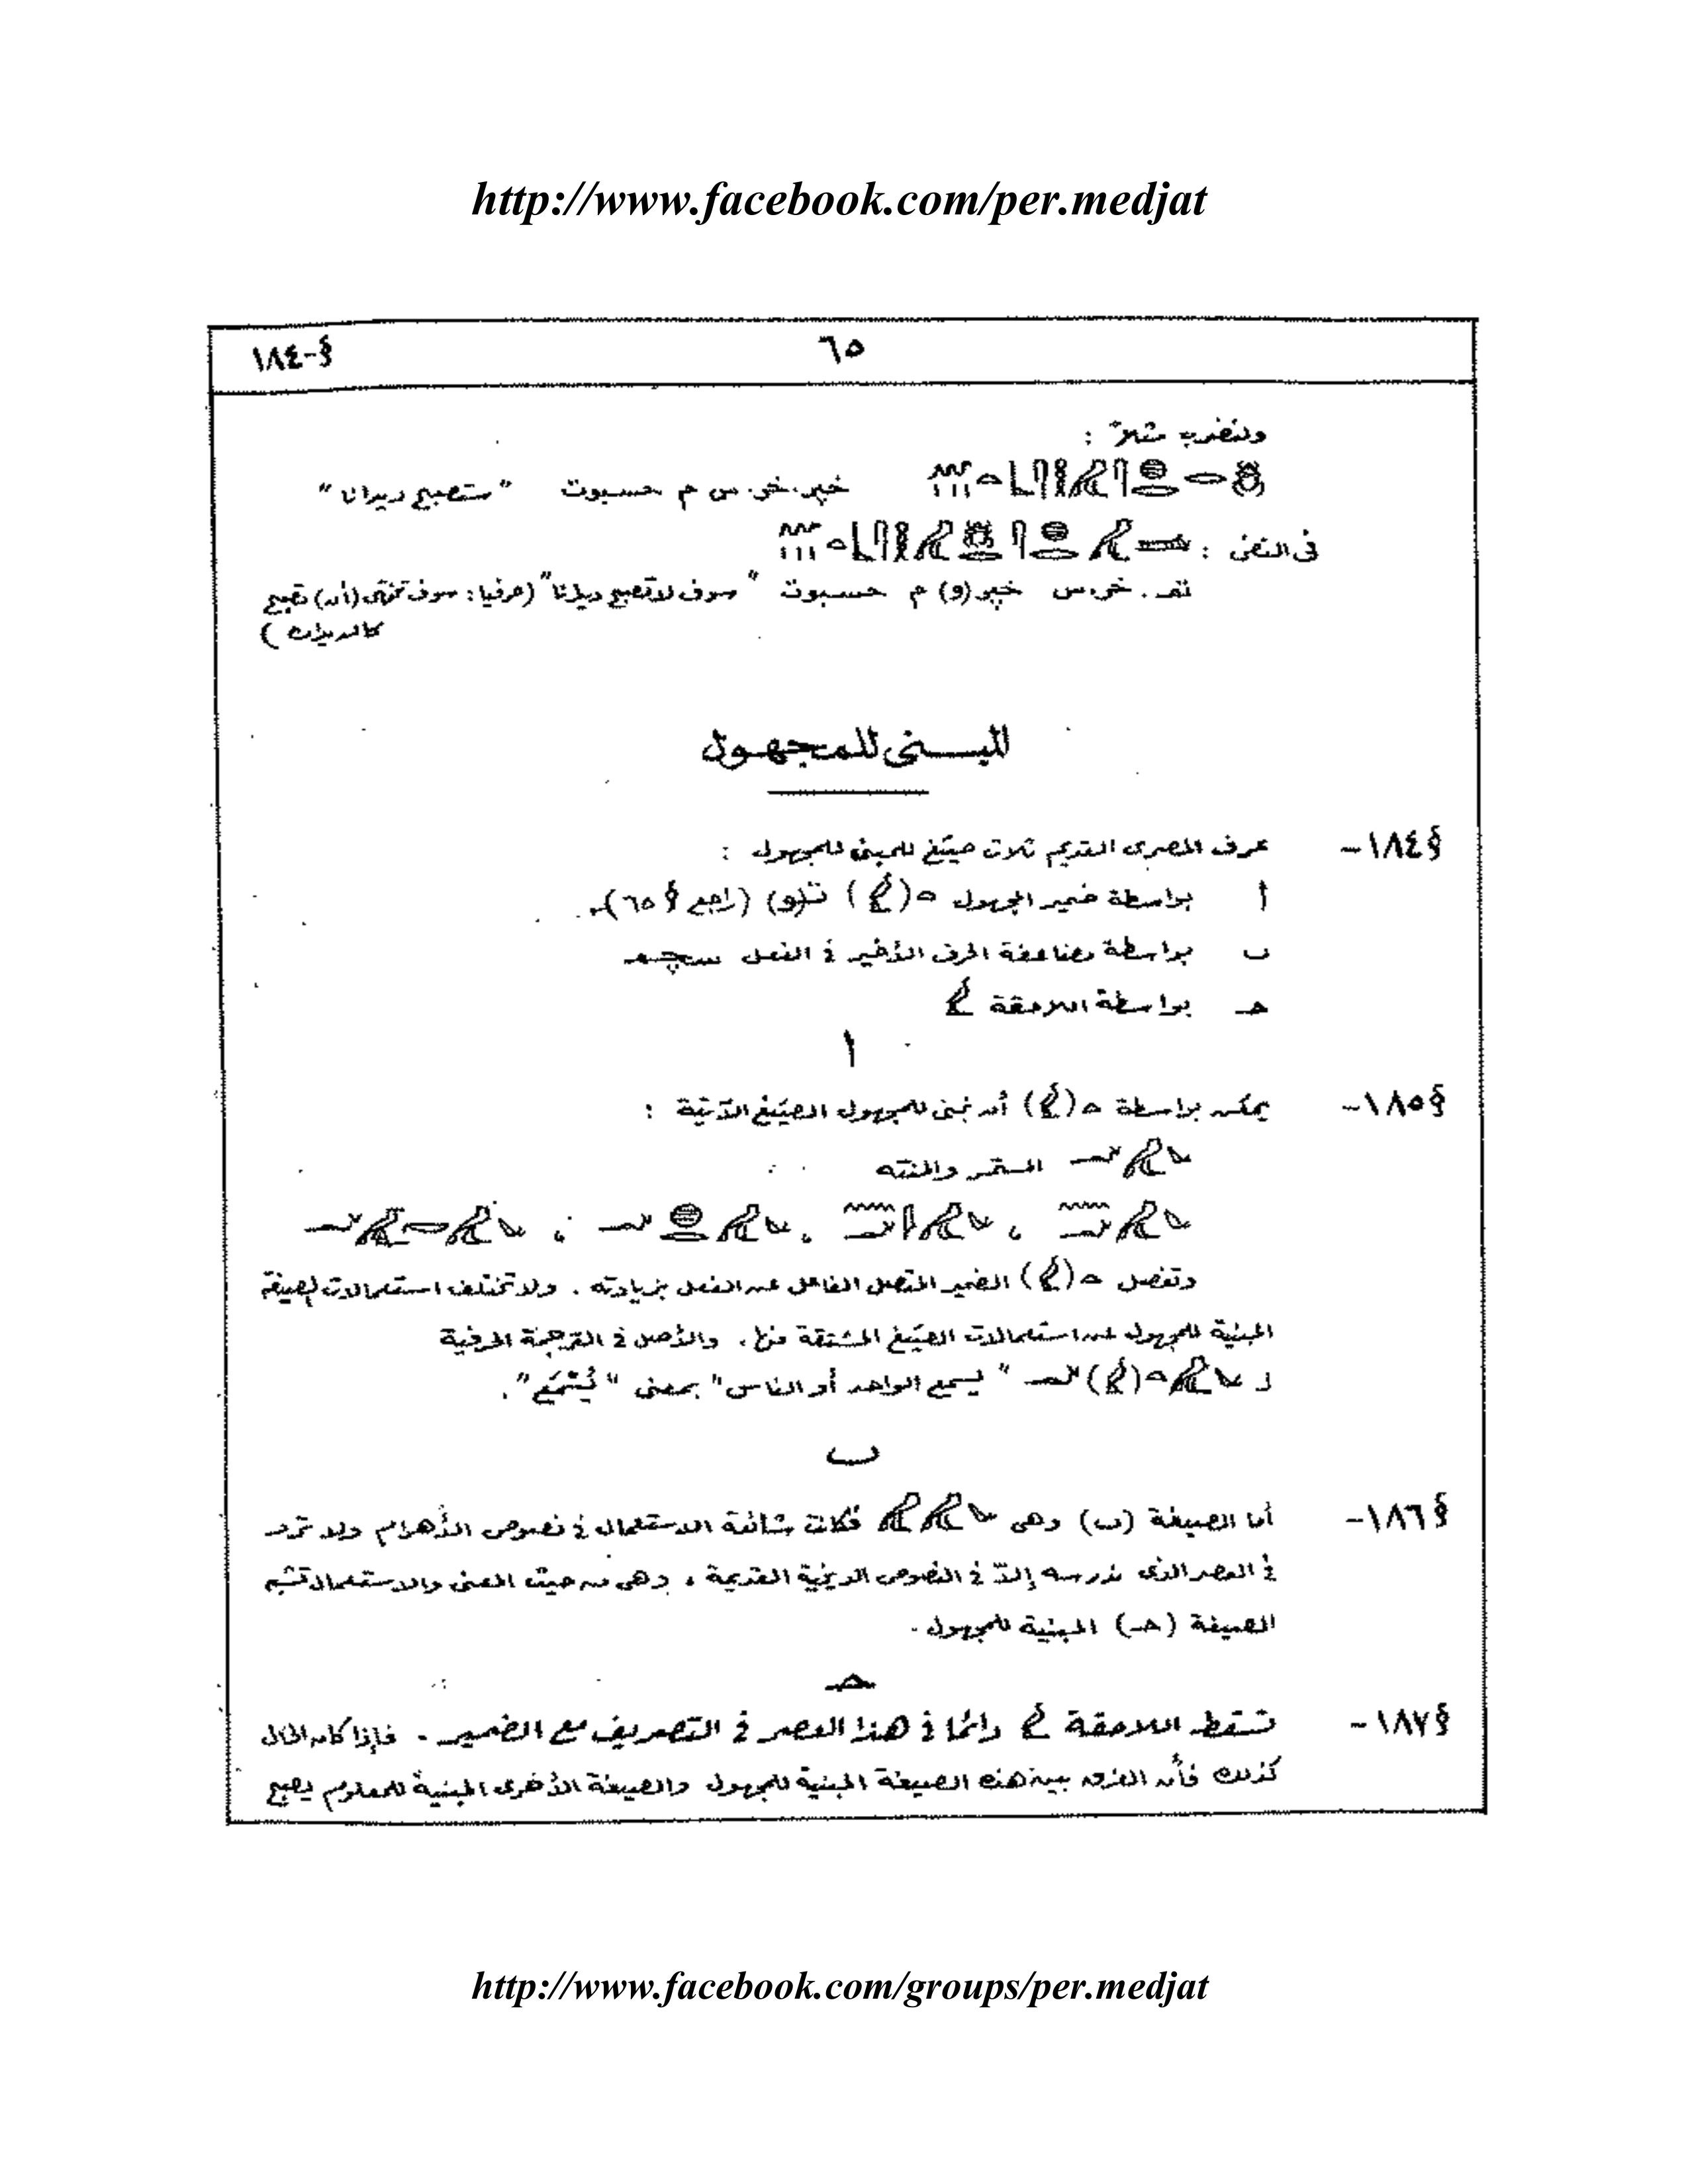 http://www.facebook.com/per.medjat
§-١٨٤
٦٥
ولنضرب مثلاً :
خپر.خر.س م حسبوت "ستصبح ديدانا"
فى النفى :
تم.خر.س خپر(و) م حسبوت "سوف لا تصبح ديدانا" (حرفيا: سوف تنتهى (أن) تصبح
كالديدان )
المبنى للمجهول
§١٨٤- عرف المصرى القديم ثلاث صيَغ للمبنى للمجهول :
أ بواسطة ضمير المجهول ( ) ت(و) (راجع § ٦٥).
ب بواسطة مضاعفة الحرف الأخير فى الفعل سچم
حـ بواسطة اللاحقة
أ
§١٨٥- يمكن بواسطة ( ) أن نبنى للمجهول الصيَغ الآتية :
المستمر والمنته
وتفصل ( ) الضمير المتصل الفاعل عن الفعل بزيادته . ولا تختلف استعمالات الصيغة
المبنية للمجهول عن استعمالات الصيَغ المشتقة منها. والأصل فى الترجمة الحرفية
لـ ( ) "يسمع الواحد أو الناس" بمعنى "يُسْمَع".
ب
§١٨٦- أما الصيغة (ب) وهى فكانت شائعة الاستعمال فى نصوص الأهرام ولا ترد
فى العصر الذى ندرسه إلاّ فى النصوص الدينية القديمة ، وهى من حيث المعنى والاستعمال تشبه
الصيغة (حـ) المبنية للمجهول .
حـ
§١٨٧- تسقط اللاحقة دائما فى هذا العصر فى التصريف مع الضمير . فإذا كان الحال
كذلك فأن الفرق بين هذه الصيغة المبنية للمجهول والصيغة الأخرى المبنية للمعلوم يصبح
http://www.facebook.com/groups/per.medjat